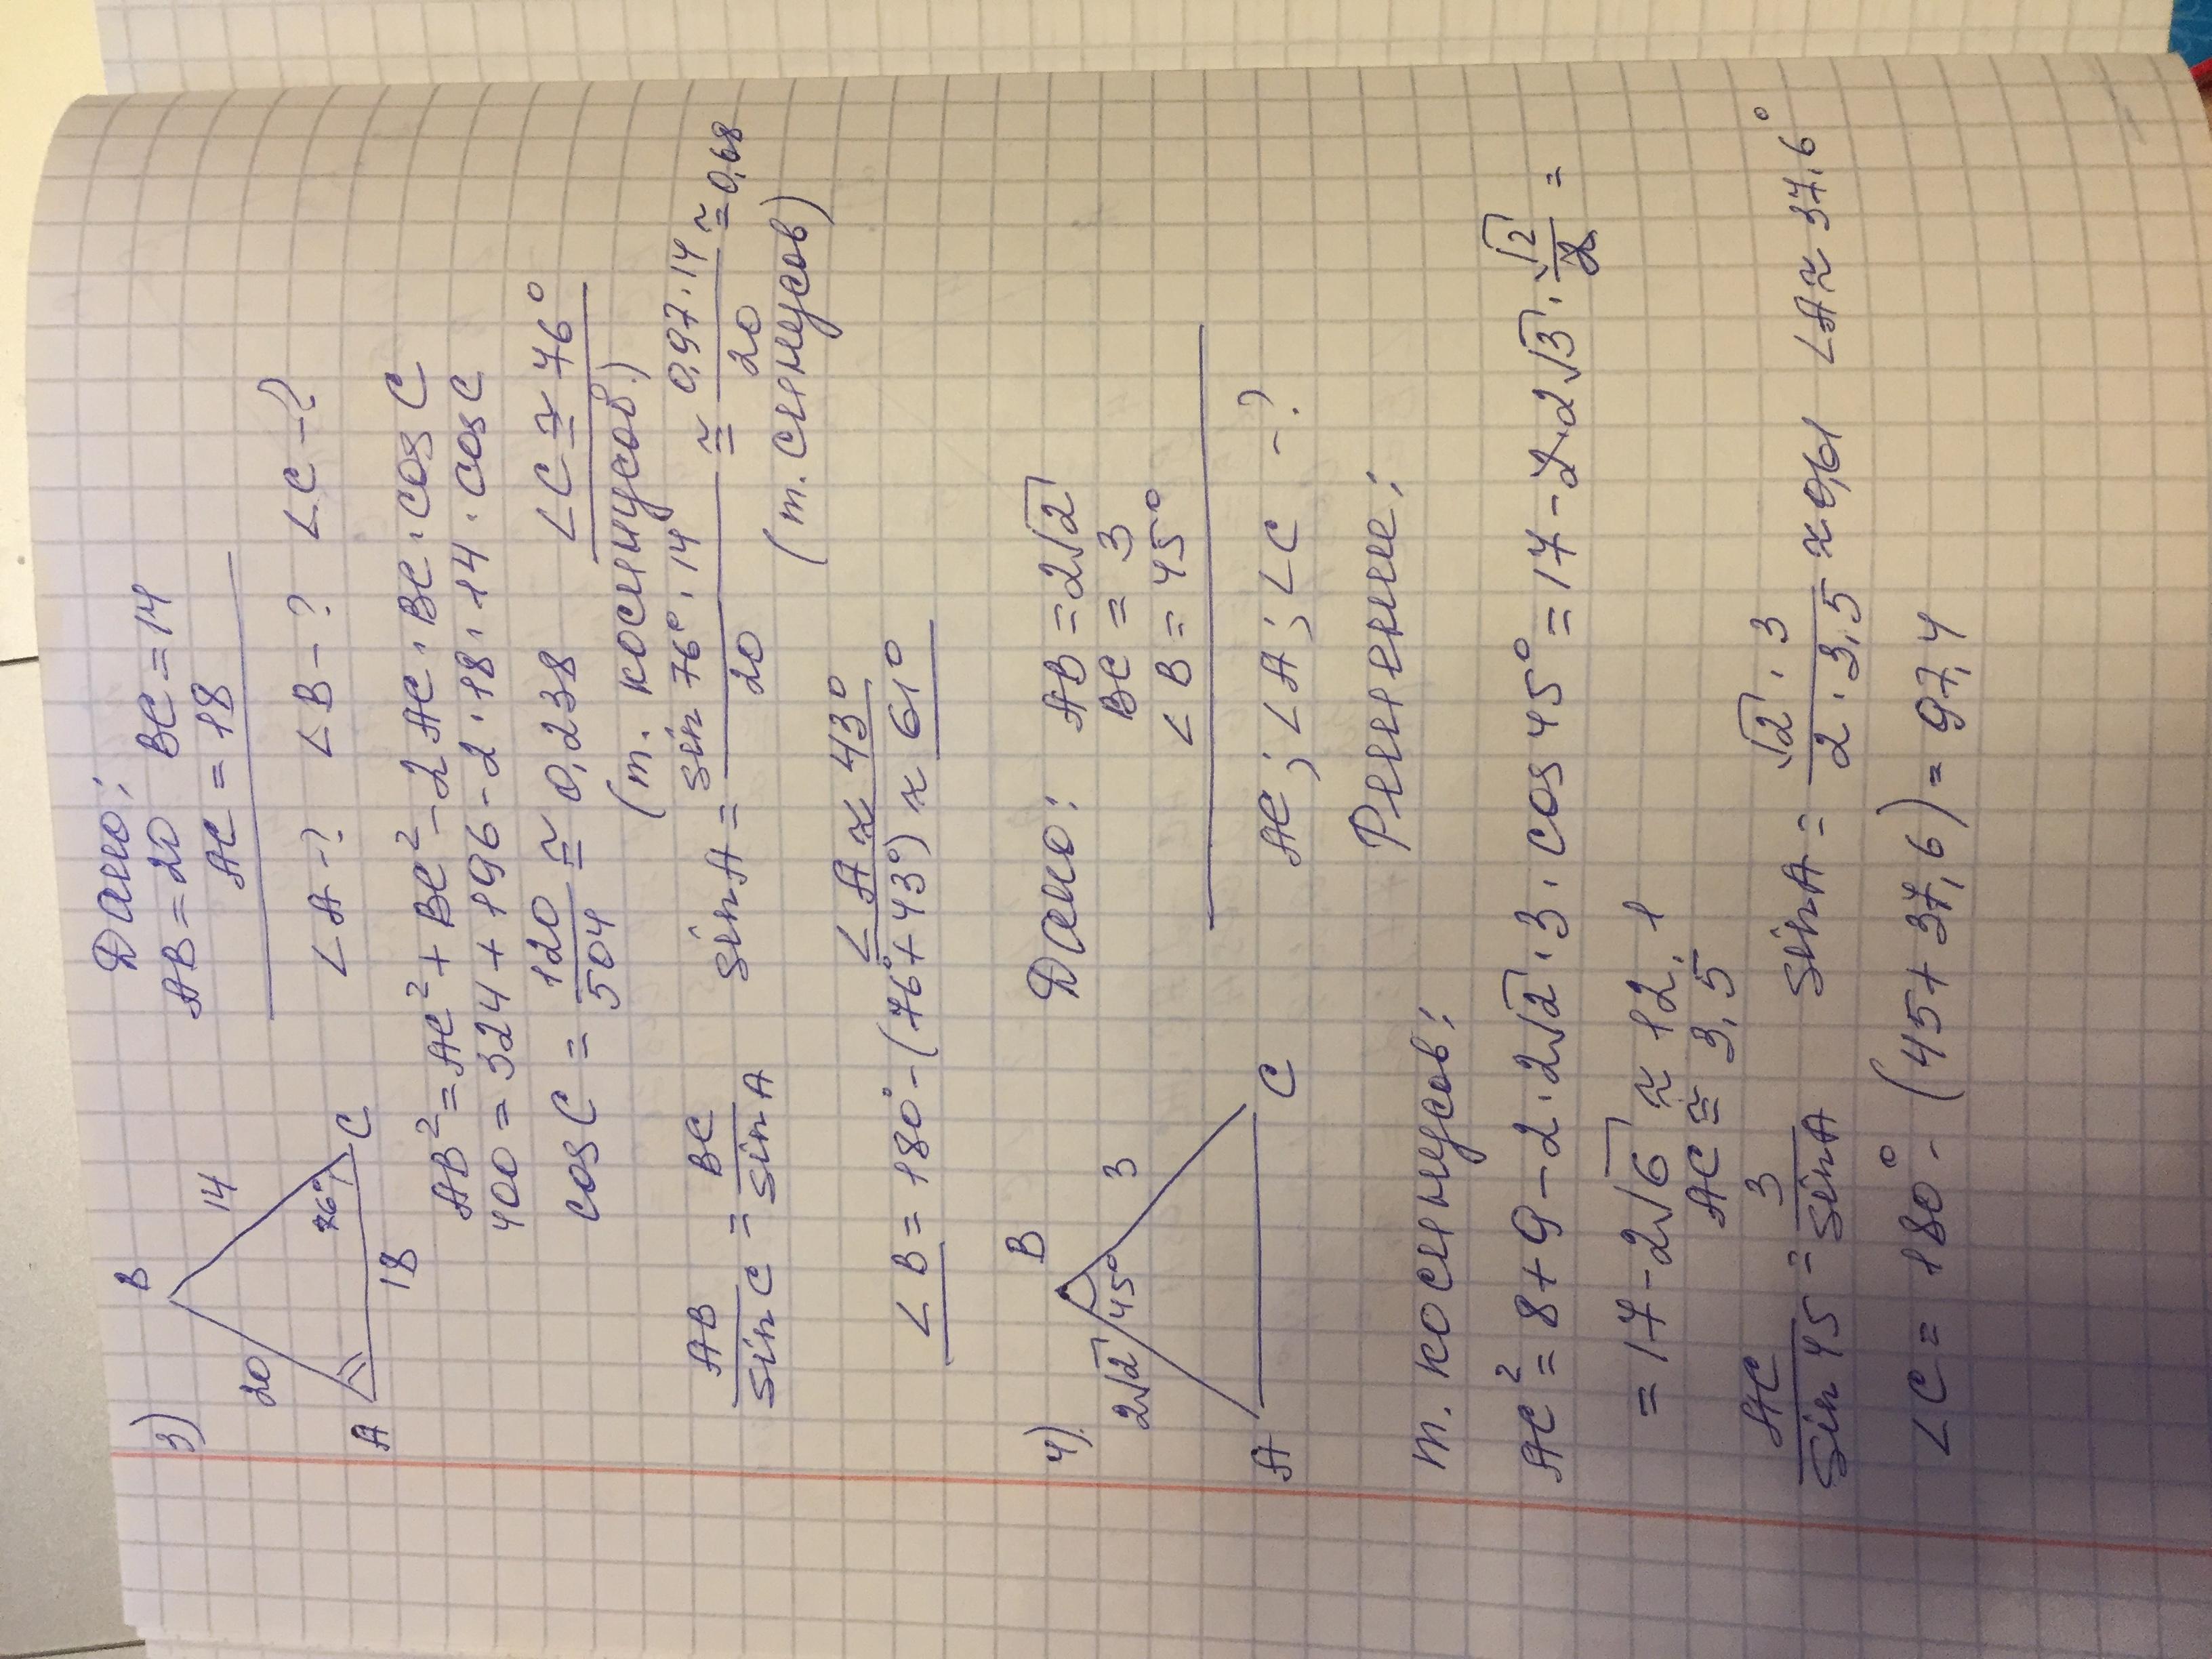 3)
Дано:
AB = 20 BC = 14
AC = 18
B
14
20
76°
A
18
C
∠A - ? ∠B - ? ∠C - ?
AB² = AC² + BC² - 2 AC · BC · cos C
400 = 324 + 196 - 2 · 18 · 14 · cos C
cos C = 120/504 ≃ 0,238 ∠C ≃ 76°
(т. косинусов.)
AB/sin C = BC/sin A sin A = sin 76° · 14/20 ≃ 0,97 · 14/20 ≃ 0,68
(т. синусов)
∠A ≈ 43°
∠B = 180° - (76° + 43°) ≈ 61°
4).
Дано: AB = 2√2
BC = 3
∠B = 45°
B
2√2
45°
3
A
C
AC ; ∠A ; ∠C - ?
Решение:
т. косинусов:
AC² = 8 + 9 - 2 · 2√2 · 3 · cos 45° = 17 - 2 · 2√3 · √2/2 =
= 17 - 2√6 ≈ 12,1
AC ≃ 3,5
AC/sin 45 = 3/sin A sin A = √2 · 3/2 · 3,5 ≈ 0,61 ∠A ≈ 37,6°
∠C = 180° - (45 + 37,6) = 97,4